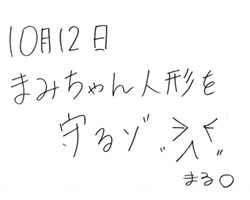 10月12日
まみちゃん人形を
守るゾ
まる〇